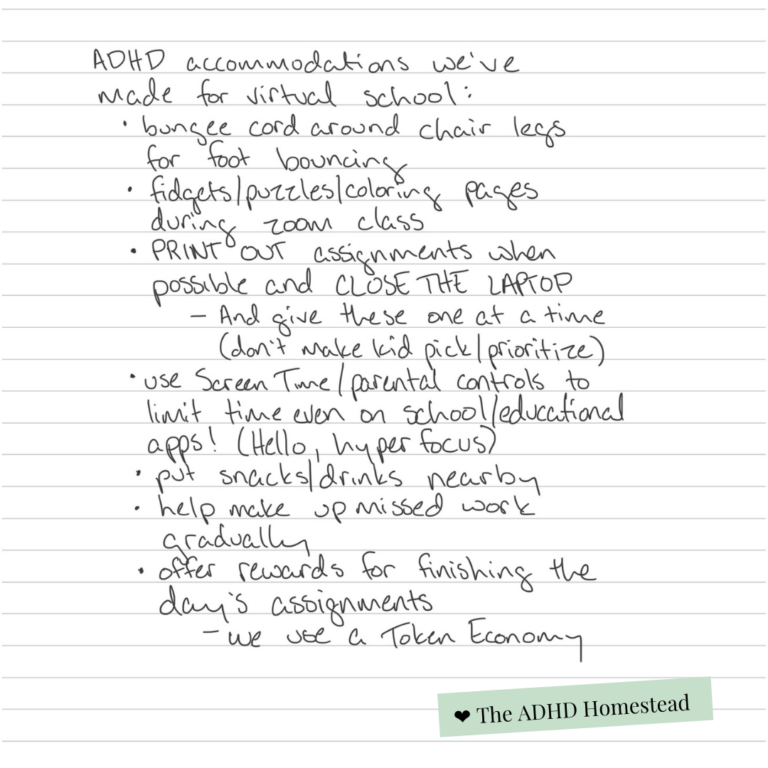 ADHD accommodations we've
made for virtual school:
• bungee cord around chair legs
for foot bouncing
• fidgets/puzzles/coloring pages
during zoom class
• PRINT OUT assignments when
possible and CLOSE THE LAPTOP
– And give these one at a time
(don't make kid pick/prioritize)
• use Screen Time/parental controls to
limit time even on school/educational
apps! (Hello, hyper focus)
• put snacks/drinks nearby
• help make up missed work
gradually
• offer rewards for finishing the
day's assignments
– we use a Token Economy
❤ The ADHD Homestead